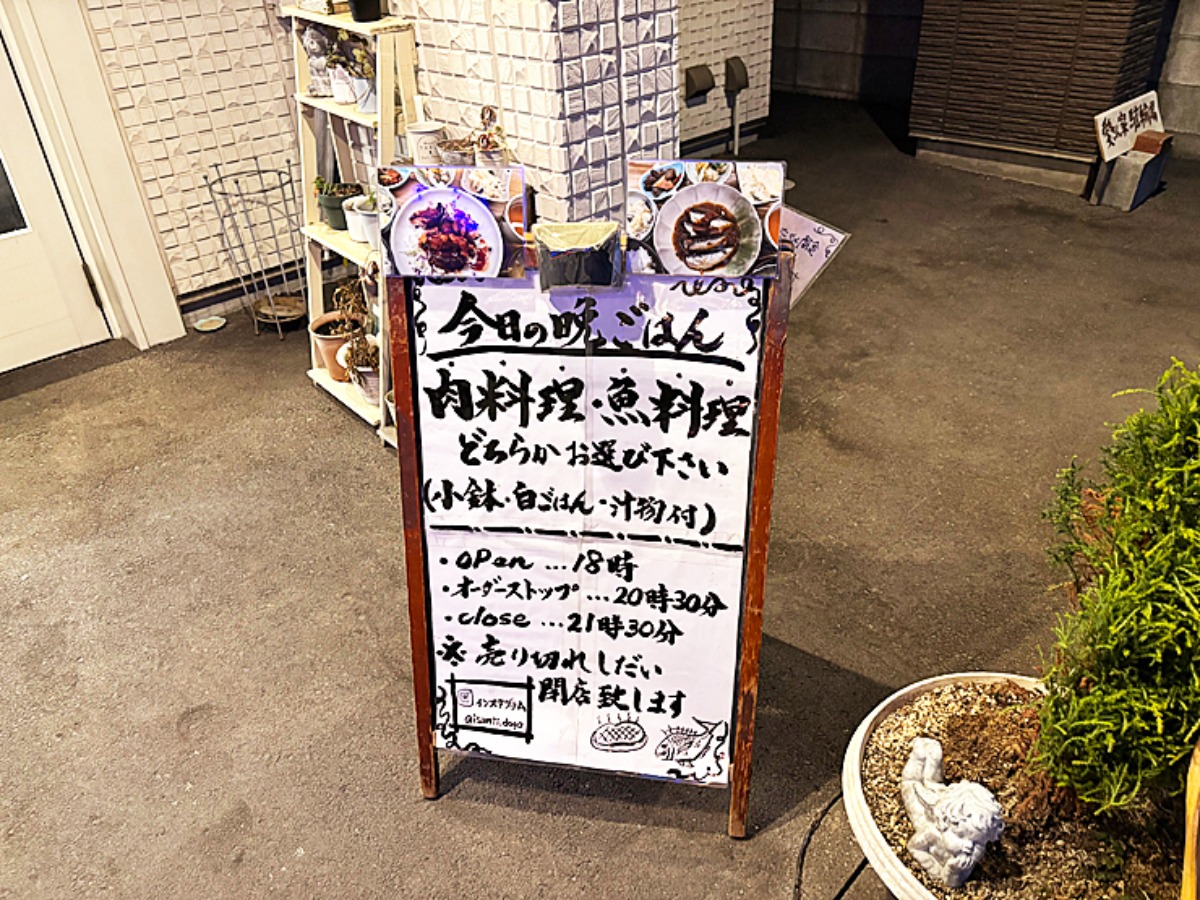 今日の晩ごはん
肉料理・魚料理
どちらかお選び下さい
(小鉢・白ごはん・汁物付)
・open …18時
・オーダーストップ …20時30分
・close …21時30分
※ 売り切れしだい
閉店致します
インスタグラム